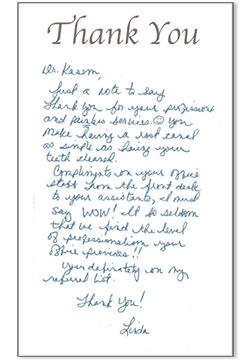 Thank You
Dr. Kasem,
Just a note to say
thank you for your professional
and painless services. ☺ You
make having a root canal
as simple as having your
teeth cleaned.
Compliments on your office
staff from the front desk
to your assistants, I must
say WOW! It's so seldom
that we find the level
of professionalism your
office provides!!
Your definitely on my
referral list.
Thank You!
Linda